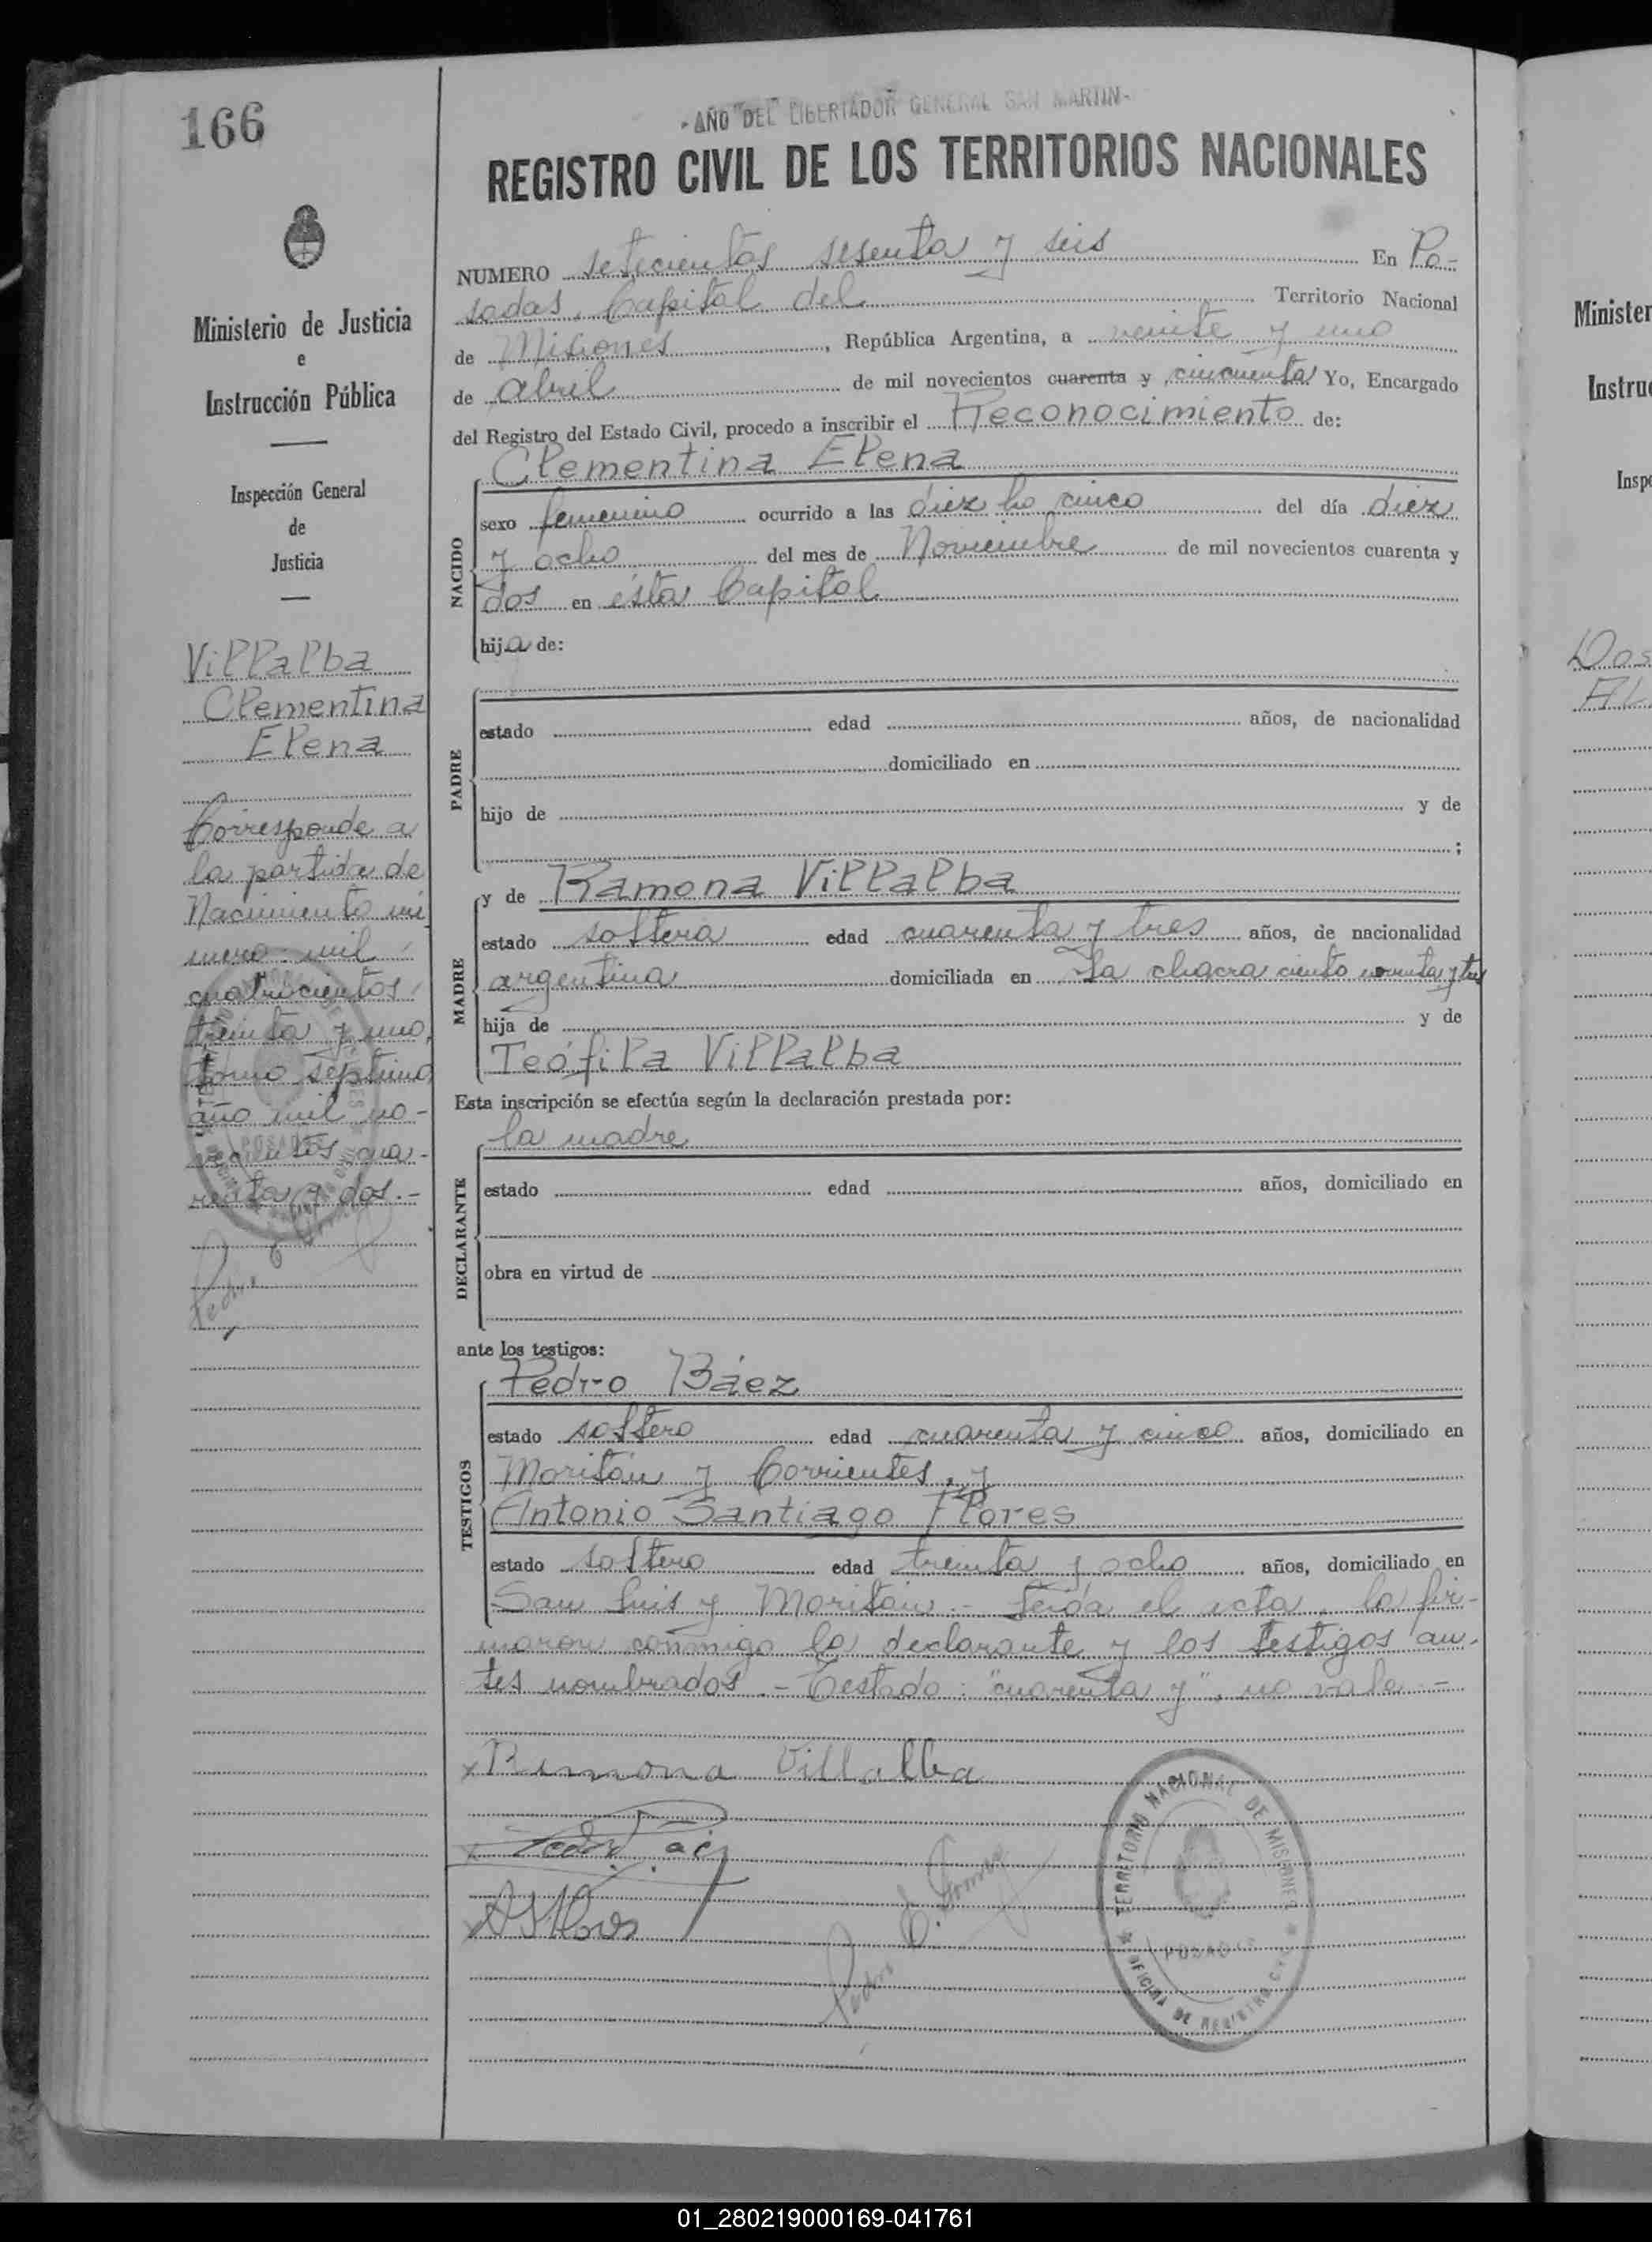 166
-AÑO DEL LIBERTADOR GENERAL SAN MARTIN-
REGISTRO CIVIL DE LOS TERRITORIOS NACIONALES
Ministerio de Justicia
e
Instrucción Pública
Inspección General
de
Justicia
Villalba
Clementina
Elena
Corresponde a
la partida de
Nacimiento nú
mero mil
cuatrocientos
treinta y uno,
tomo séptimo,
año mil no-
vecientos cua-
renta y dos.-
NUMERO setecientos sesenta y seis En Po-
sadas, Capital del Territorio Nacional
de Misiones, República Argentina, a veinte y uno
de abril de mil novecientos cuarenta y cincuenta Yo, Encargado
del Registro del Estado Civil, procedo a inscribir el Reconocimiento de:
Clementina Elena
NACIDO
sexo femenino ocurrido a las diez ho cinco del día diez
y ocho del mes de Noviembre de mil novecientos cuarenta y
dos en ésta Capital
hija de:
PADRE
estado edad años, de nacionalidad
domiciliado en
hijo de y de
;
y de Ramona Villalba
MADRE
estado soltera edad cuarenta y tres años, de nacionalidad
argentina domiciliada en la chacra ciento noventa y tres
hija de y de
Teófila Villalba
Esta inscripción se efectúa según la declaración prestada por:
la madre
DECLARANTE
estado edad años, domiciliado en
obra en virtud de
ante los testigos:
Pedro Báez
TESTIGOS
estado soltero edad cuarenta y cinco años, domiciliado en
Moritán y Corrientes, y
Antonio Santiago Flores
estado soltero edad treinta y ocho años, domiciliado en
San Luis y Moritán.- Leída el acta, la fir-
maron conmigo la declarante y los testigos an-
tes nombrados.- Testado: "cuarenta y", no vale.-
x Ramona Villalba
ASFlores
Pedro
TERRITORIO NACIONAL DE MISIONES
POSADAS
OFICINA DE REGISTRO CIVIL
Minister
Instru
Insp
Dos
01_280219000169-041761